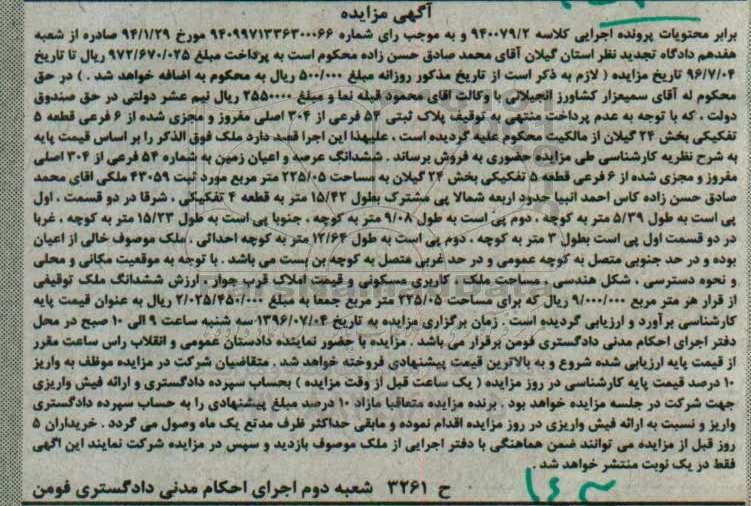 آگهی مزایده
برابر محتویات پرونده اجرایی کلاسه ۹۴۰۰۷۹/۲ و به موجب رای شماره ۹۴۰۹۹۷۱۳۳۶۳۰۰۰۶۶ مورخ ۹۴/۱/۲۹ صادره از شعبه
هفدهم دادگاه تجدید نظر استان گیلان آقای محمد صادق حسن زاده محکوم است به پرداخت مبلغ ۹۷۲/۶۷۰/۰۲۵ ریال تا تاریخ
۹۶/۷/۰۴ تاریخ مزایده ( لازم به ذکر است از تاریخ مذکور روزانه مبلغ ۵۰۰/۰۰۰ ریال به محکوم به اضافه خواهد شد . ) در حق
محکوم له آقای سمیعزار کشاورز انجیلانی با وکالت اقای محمود قبله نما و مبلغ ۲۵۵۰۰۰۰ ریال نیم عشر دولتی در حق صندوق
دولت ، که با توجه به عدم پرداخت منتهی به توقیف پلاک ثبتی ۵۴ فرعی از ۳۰۴ اصلی مفروز و مجزی شده از ۶ فرعی قطعه ۵
تفکیکی بخش ۲۴ گیلان از مالکیت محکوم علیه گردیده است ، علیهذا این اجرا قصد دارد ملک فوق الذکر را بر اساس قیمت پایه
به شرح نظریه کارشناسی طی مزایده حضوری به فروش برساند . ششدانگ عرصه و اعیان زمین به شماره ۵۴ فرعی از ۳۰۴ اصلی
مفروز و مجزی شده از ۶ فرعی قطعه ۵ تفکیکی بخش ۲۴ گیلان به مساحت ۲۲۵/۰۵ متر مربع مورد ثبت ۴۳۰۵۹ ملکی اقای محمد
صادق حسن زاده کاس احمد انبیا حدود اربعه شمالا پی مشترک بطول ۱۵/۴۲ متر به قطعه ۴ تفکیکی ، شرقا در دو قسمت ، اول
پی است به طول ۵/۳۹ متر به کوچه ، دوم پی است به طول ۹/۰۸ متر به کوچه ، جنوبا پی است به طول ۱۵/۲۳ متر به کوچه ، غربا
در دو قسمت اول پی است بطول ۳ متر به کوچه ، دوم پی است به طول ۱۲/۶۴ متر به کوچه احداثی . ملک موصوف خالی از اعیان
بوده و در حد جنوبی متصل به کوچه عمومی و در حد غربی متصل به کوچه بن بست می باشد . با توجه به موقعیت مکانی و محلی
و نحوه دسترسی ، شکل هندسی ، مساحت ملک ، کاربری مسکونی و قیمت املاک قرب جوار ، ارزش ششدانگ ملک توقیفی
از قرار هر متر مربع ۹/۰۰۰/۰۰۰ ریال که برای مساحت ۲۲۵/۰۵ متر مربع جمعا به مبلغ ۲/۰۲۵/۴۵۰/۰۰۰ ریال به عنوان قیمت پایه
کارشناسی برآورد و ارزیابی گردیده است . زمان برگزاری مزایده به تاریخ ۱۳۹۶/۰۷/۰۴ سه شنبه ساعت ۹ الی ۱۰ صبح در محل
دفتر اجرای احکام مدنی دادگستری فومن برقرار می باشد . مزایده با حضور نماینده دادستان عمومی و انقلاب راس ساعت مقرر
از قیمت پایه ارزیابی شده شروع و به بالاترین قیمت پیشنهادی فروخته خواهد شد . متقاضیان شرکت در مزایده موظف به واریز
۱۰ درصد قیمت پایه کارشناسی در روز مزایده ( یک ساعت قبل از وقت مزایده ) بحساب سپرده دادگستری و ارائه فیش واریزی
جهت شرکت در جلسه مزایده خواهد بود . برنده مزایده متعاقبا مازاد ۱۰ درصد مبلغ پیشنهادی را به حساب سپرده دادگستری
واریز و نسبت به ارائه فیش واریزی در روز مزایده اقدام نموده و مابقی حداکثر ظرف مدتع یک ماه وصول می گردد . خریداران ۵
روز قبل از مزایده می توانند ضمن هماهنگی با دفتر اجرایی از ملک موصوف بازدید و سپس در مزایده شرکت نمایند این اگهی
فقط در یک نوبت منتشر خواهد شد .
ح ۳۲۶۱ شعبه دوم اجرای احکام مدنی دادگستری فومن